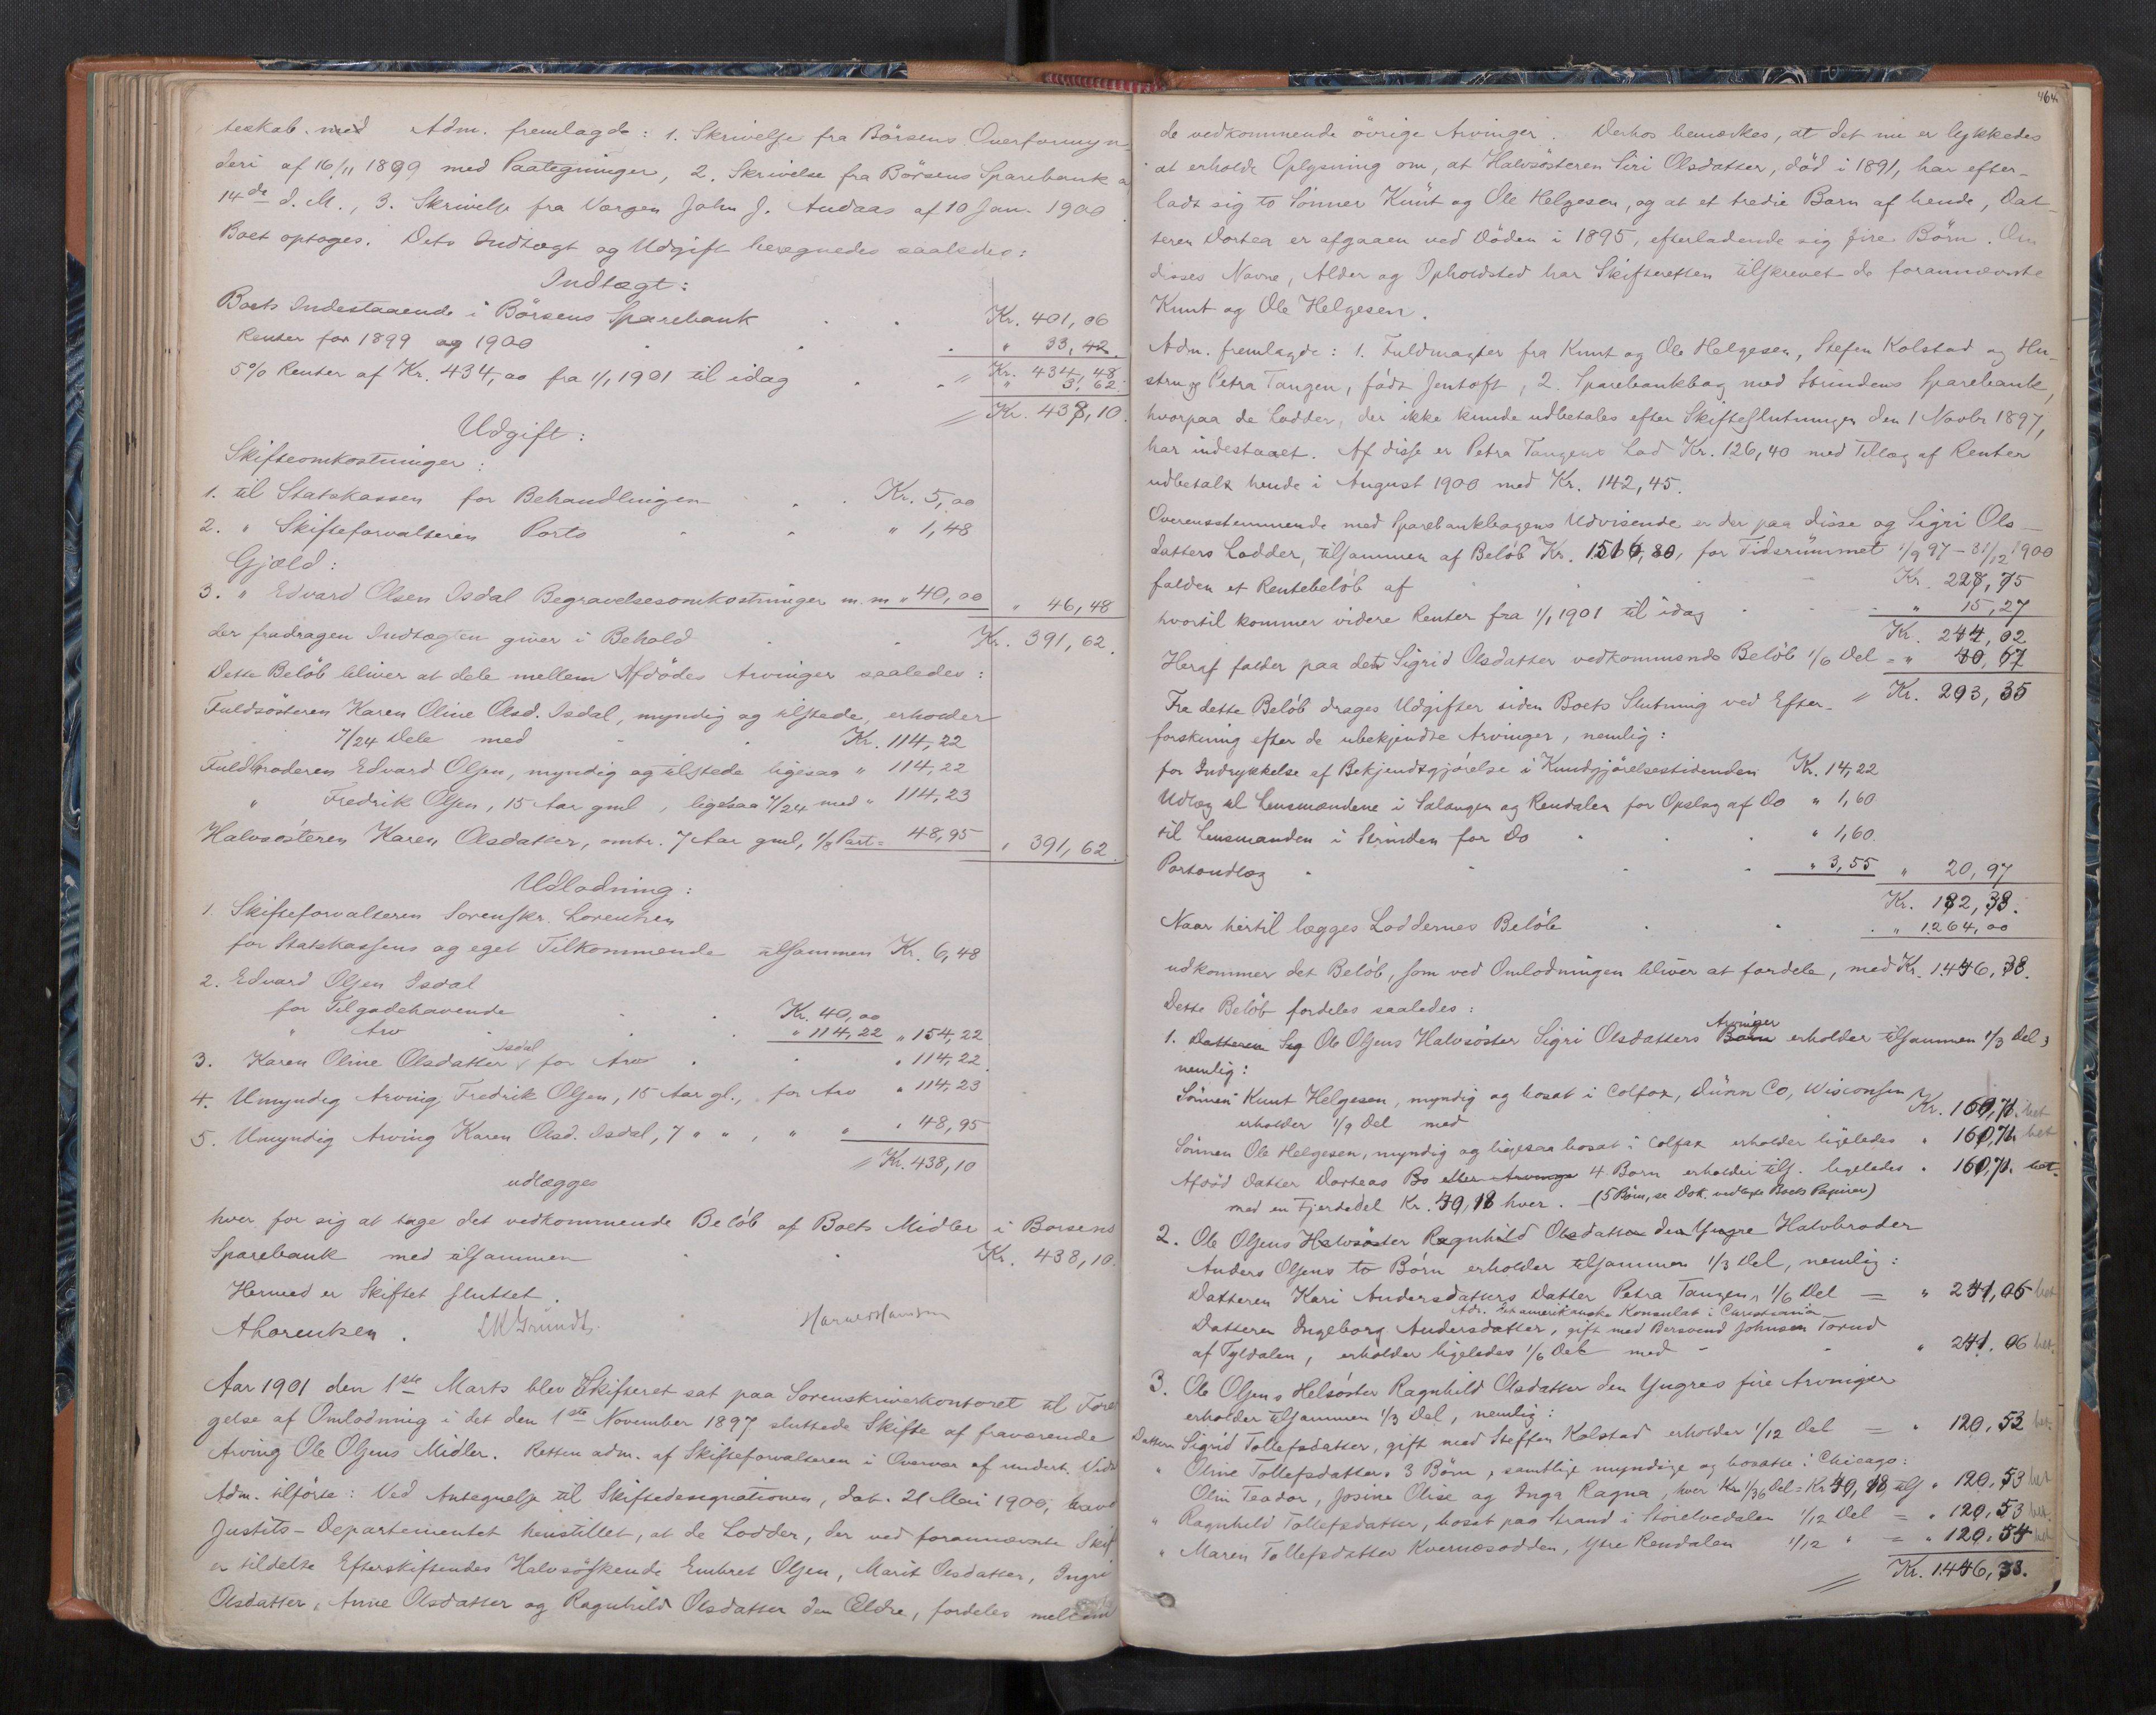 teskab. med Adm. fremlagde: 1. Skrivelse fra Börsens Overformyn
deri af 16/11 1899 med Paategninger, 2. Skrivelse fra Börsens Sparebank a
14de d. M., 3. Skrivelse fra Værgen John J. Andaas af 10 Jan. 1900.
Boet optoges. Dets Indtægt og Udgift beregnedes saaledes:
Indtægt:
Boets Indestaaende i Börsens Sparebank Kr. 401,06
Renter for 1899 og 1900 " 33,42
Kr. 434,48
5% Renter af Kr. 434,00 fra 1/1 1901 til idag " 3,62
Kr. 438,10.
Udgift:
Skifteomkostninger:
1. til Statskassen for Behandlingen Kr. 5,00
2. " Skifteforvalteren Porto " 1,48
Gjæld:
3. " Edvard Olsen Isdal Begravelsesomkostninger m. m " 40,00 " 46,48
der fradragen Indtægten giver i Behold Kr. 391,62.
Dette Belöb bliver at dele mellem Afdödes Arvinger saaledes:
Fuldsösteren Karen Oline Olsd. Isdal, myndig og tilstede, erholder
7/24 Dele med Kr. 114,22
Fuldbroderen Edvard Olsen, myndig og tilstede ligesaa " 114,22
" Fredrik Olsen, 15 Aar gml, ligesaa 7/24 med " 114,23
Halvsösteren Karen Olsdatter, omtr. 7 Aar gml, 1/8 Part = 48,95 " 391,62.
Udlodning:
1. Skifteforvalteren Sorenskr. Lorentzen
for Statskassens og eget Tilkommende tilsammen Kr. 6,48
2. Edvard Olsen Isdal
for Tilgodehavende Kr. 40,00
" Arv " 114,22 " 154,22
3. Karen Oline Olsdatter Isdal for Arv " 114,22
4. Umyndig Arving Fredrik Olsen, 15 Aar gl., for Arv " 114,23
5. Umyndig Arving Karen Olsd. Isdal, 7 " ", " " " 48,95
Kr. 438,10
udlægges
hver for sig at tage det vedkommende Belöb af Boets Midler i Borsens
Sparebank med tilsammen Kr. 438,10.
Hermed er Skiftet sluttet.
ALorentzen. Harald Hansen
Aar 1901 den 1ste Marts blev Skifteret sat paa Sorenskriverkontoret til Fore
gelse af Omlodning i det den 1ste November 1897 sluttede Skifte af fraværende
Arving Ole Olsens Midler. Retten adm. af Skifteforvalteren i Overvær af undert. Vid
Adm. tilförte: Ved Antegnelse til Skiftedesignationen, dat. 21 Mai 1900, havd
Justits-Departementet henstillet, at de Lodder, der ved forannævnte Skif
er tildelte Efterskiftendes Halvsöskende Embret Olsen, Marit Olsdatter, Ingri
Olsdatter, Anne Olsdatter og Ragnhild Olsdatter den Ældre, fordeles mellem
464
de vedkommende övrige Arvinger. Derhos bemærkes, at det nu er lykkedes
at erholde Oplysning om, at Halvsösteren Siri Olsdatter, död i 1891, har efter-
ladt sig to Sönner Knut og Ole Helgesen, og at et tredie Barn af hende, Dat-
teren Dortea er afgaaen ved Döden i 1895, efterladende sig fire Börn. Om
disses Navne, Alder og Opholdsted har Skifteretten tilskrevet de forannævnte
Knut og Ole Helgesen.
Adm. fremlagde: 1. Fuldmagter fra Knut og Ole Helgesen, Stefen Kolstad og Hu-
stru og Petra Tangen, födt Jentoft, 2. Sparebankbog med Strindens Sparebank,
hvorpaa de Lodder, der ikke kunde udbetales efter Skifteslutningen den 1 Novbr 1897,
har indestaaet. Af disse er Petra Tangens Lod Kr. 126,40 med Tillæg af Renter
udbetalt hende i August 1900 med Kr. 142,45.
Overensstemmende med Sparebankbogens Udvisende er der paa disse og Sigri Ols-
datters Lodder, tilsammen af Belöb Kr. 1516,80, for Tidsrummet 1/9 97 - 31/12 1900
falden et Rentebelöb af Kr. 228,75
hvortil kommer videre Renter fra 1/1 1901 til idag " 15,27
Kr. 244,02
Heraf falder paa det Sigrid Olsdatter vedkommende Belöb 1/6 Del = " 40,67
Kr. 203,35
Fra dette Belöb drages Udgifter siden Boets Slutning ved Efter-
forskning efter de ubekjendte Arvinger, nemlig:
for Indrykkelse af Bekjendtgjörelse i Kundgjörelsestidenden Kr. 14,22
Udlæg til Lensmændene i Salangen og Rendalen for Opslag af Do " 1,60
til Lensmanden i Strinden for Do " 1,60
Portoudlæg " 3,55 " 20,97
Kr. 182,38.
Naar hertil lægges Loddernes Belöb " 1264,00
udkommer det Belöb, som ved Omlodningen bliver at fordele, med Kr. 1446,38.
Dette Belöb fordeles saaledes:
1. Datteren Sig Ole Olsens Halvsöster Sigri Olsdatters Börn Arvinger erholder tilsammen 1/3 Del,
nemlig:
Sönnen Knut Helgesen, myndig og bosat i Colfax, Dunn Co, Wisconsin
erholder 1/9 Del med Kr. 160,71. bet
Sönnen Ole Helgesen, myndig og ligesaa bosat i Colfax erholder ligeledes " 160,71. bet
Afdöd Datter Dorteas Bo eller Arvinge 4 Born erholder tils. ligeledes " 160,71. bet.
med en Fjerdedel Kr. 40,18 hver. - (5 Börn, se Dok. vedlagt Boets Papirer)
2. Ole Olsens Halvsöster Ragnhild Olsdatter den Yngre Halvbroder
Anders Olsens to Börn erholder tilsammen 1/3 Del, nemlig:
Datteren Kari Andersdatters Datter Petra Tangen, 1/6 Del = " 241,06 bet
Adr. Det amerikanske Konsulat i Christiania
Datteren Ingeborg Andersdatter, gift med Bersvend Johnsen Torud
af Tyldalen, erholder ligeledes 1/6 Del med " 241,06 bet.
3. Ole Olsens Helsöster Ragnhild Olsdatter den Yngres fire Arvinger
erholder tilsammen 1/3 Del, nemlig:
Datteren Sigrid Tollefsdatter, gift med Steffen Kolstad erholder 1/12 Del = " 120,53 bet.
" Oline Tollefsdatters 3 Börn, samtlige myndige og bosatte i Chicago:
Olin Teador, Josine Olise og Inga Ragna, hver 1/36 Del = Kr 40,18, tils " 120,53 bet
" Ragnhild Tollefsdatter, bosat paa Strand i Storelvedalen 1/12 Del = " 120,53 bet.
" Maren Tollefsdatter Kvernesodden, Ytre Rendalen 1/12 " = " 120,54 bet
Kr. 1446,38.